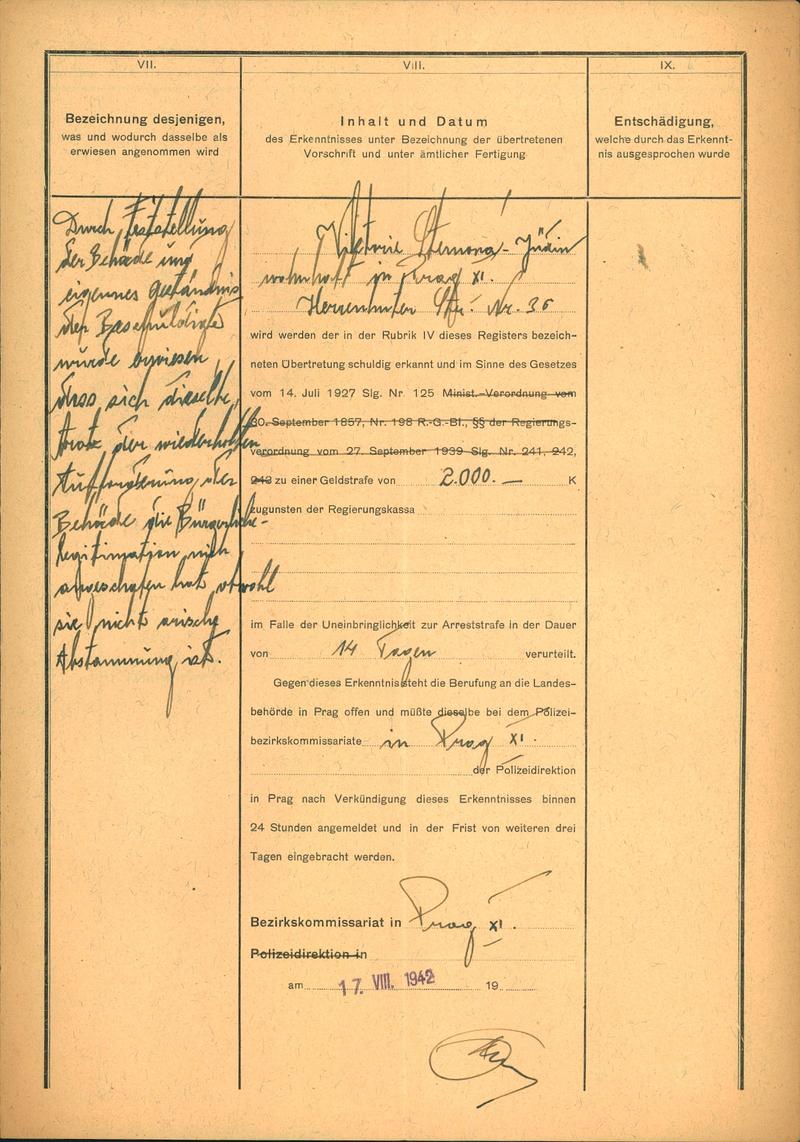 VII.
Bezeichnung desjenigen,
was und wodurch dasselbe als
erwiesen angenommen wird
Durch Feststellung
der Behörde und
eigennes Geständnis
der Beschuldigte
wurde erwiesen,
dass sich dieselbe,
trotz der wiederholten
Aufforderung der
Behörde die Bürgerliche-
legitimation nich
angeschafen hat, obwohl
sie nicht arische
Abstammung ist.
VIII.
Inhalt und Datum
des Erkenntnisses unter Bezeichnung der übertretenen
Vorschrift und unter ämtlicher Fertigung
Viktorie Sternová - Jüdin
wohnhaft in Prag XI.
Herrenhuter Str. Nr. 36
wird werden der in der Rubrik IV dieses Registers bezeich-
neten Übertretung schuldig erkannt und im Sinne des Gesetzes
vom 14. Juli 1927 Slg. Nr. 125 Minist.-Verordnung vom
30. September 1857, Nr. 198 R.-G.-Bl., §§ der Regierungs-
verordnung vom 27. September 1939 Slg. Nr. 241, 242,
243 zu einer Geldstrafe von 2.000.— K
zugunsten der Regierungskassa
im Falle der Uneinbringlichkeit zur Arreststrafe in der Dauer
von 14 Tagen verurteilt.
Gegen dieses Erkenntnis steht die Berufung an die Landes-
behörde in Prag offen und müßte dieselbe bei dem Polizei-
bezirkskommissariate in Prag XI.
der Polizeidirektion
in Prag nach Verkündigung dieses Erkenntnisses binnen
24 Stunden angemeldet und in der Frist von weiteren drei
Tagen eingebracht werden.
Bezirkskommissariat in Prag XI.
Polizeidirektion in
am 17. VIII. 1942 19
IX.
Entschädigung,
welche durch das Erkennt-
nis ausgesprochen wurde